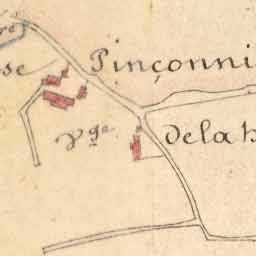 se Pinçonni
Vge
Dela